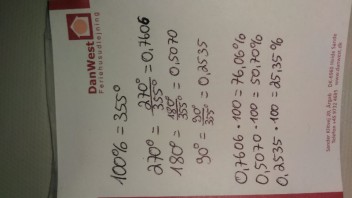 DanWest
Feriehusudlejning
100% = 355°
270° = 270°/355° = 0,7606
180° = 180°/355° = 0,5070
90° = 90°/355° = 0,2535
0,7606 · 100 = 76,06%
0,5070 · 100 = 50,70%
0,2535 · 100 = 25,35%